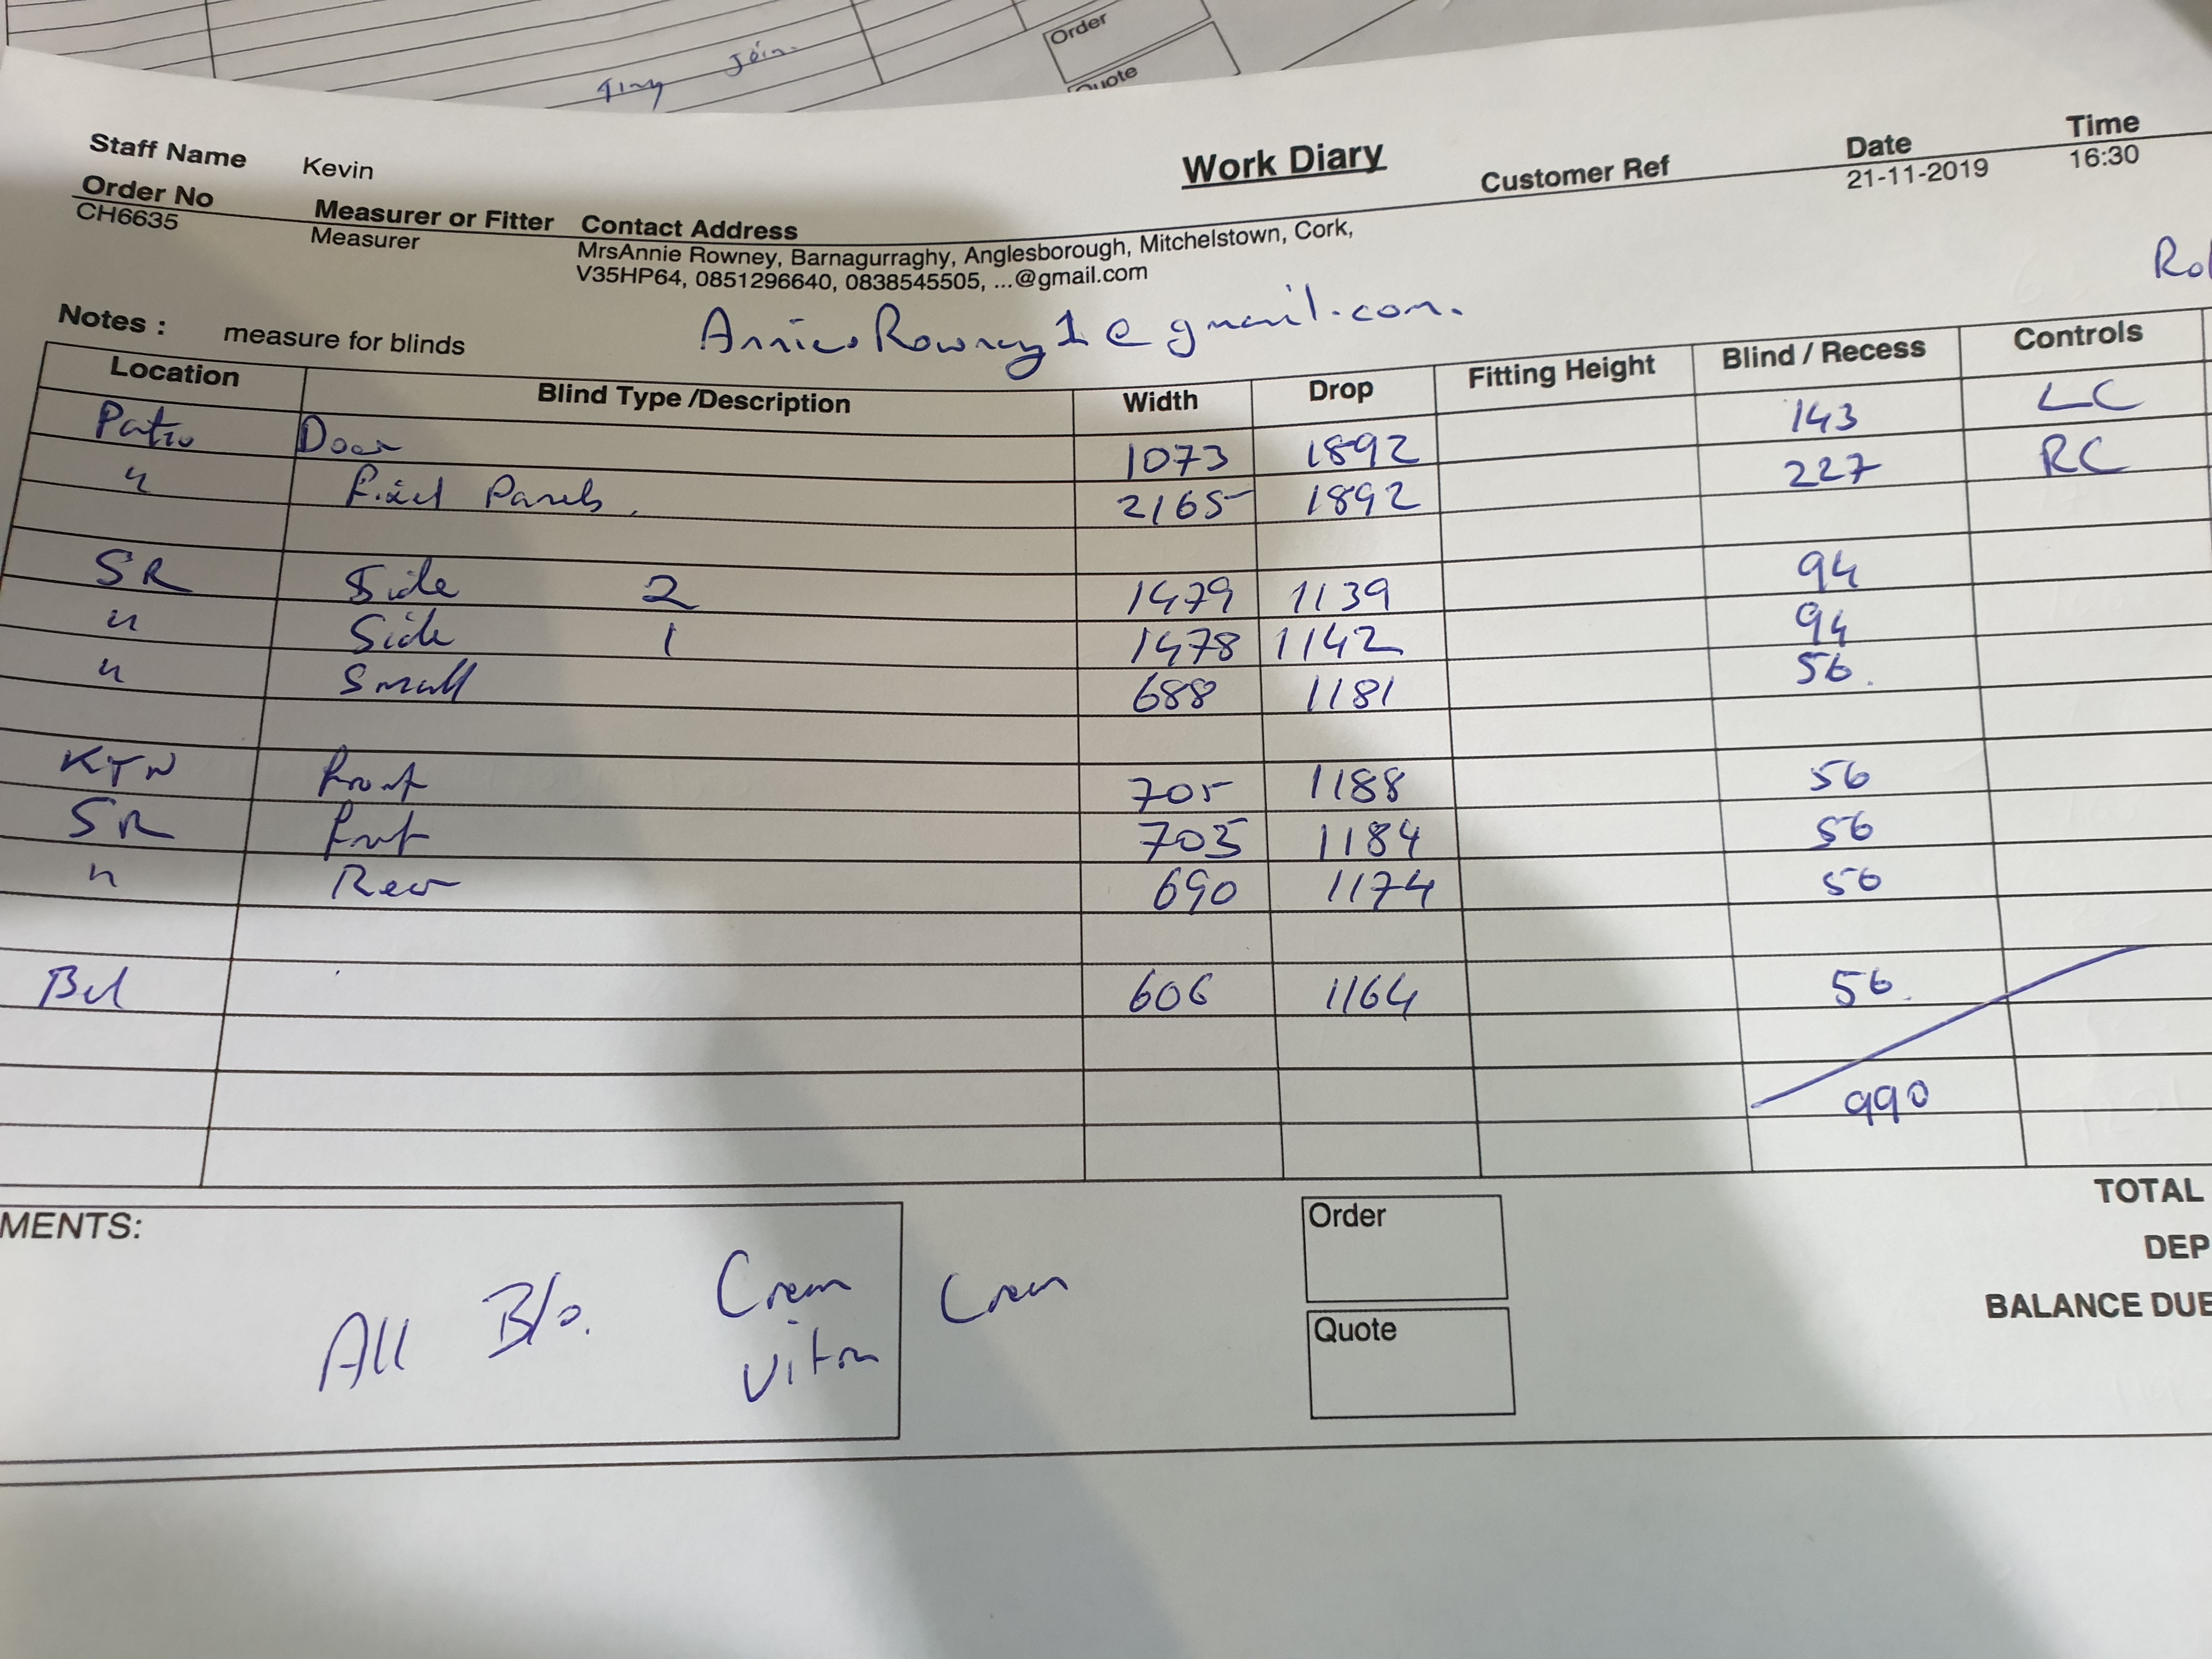 Order
Tiny Join.
Quote
Staff Name Kevin Work Diary Customer Ref Date Time
21-11-2019 16:30
Order No Measurer or Fitter Contact Address
CH6635 Measurer MrsAnnie Rowney, Barnagurraghy, Anglesborough, Mitchelstown, Cork,
V35HP64, 0851296640, 0838545505, ...@gmail.com
Notes : measure for blinds Annie.Rowney1@gmail.com.
Location Blind Type /Description Width Drop Fitting Height Blind / Recess Controls
Patio Door 1073 1892 143 LC
" Fixed Panels 2165 1892 227 RC
SR Side 2 1479 1139 94
" Side 1 1478 1142 94
" Small 688 1181 56.
KTN Front 705 1188 56
SR Frnt 705 1184 56
" Rear 690 1174 56
Bed 606 1164 56.
990
MENTS:
All B/o. Cream Cream
Order
Quote
TOTAL
DEP
BALANCE DUE